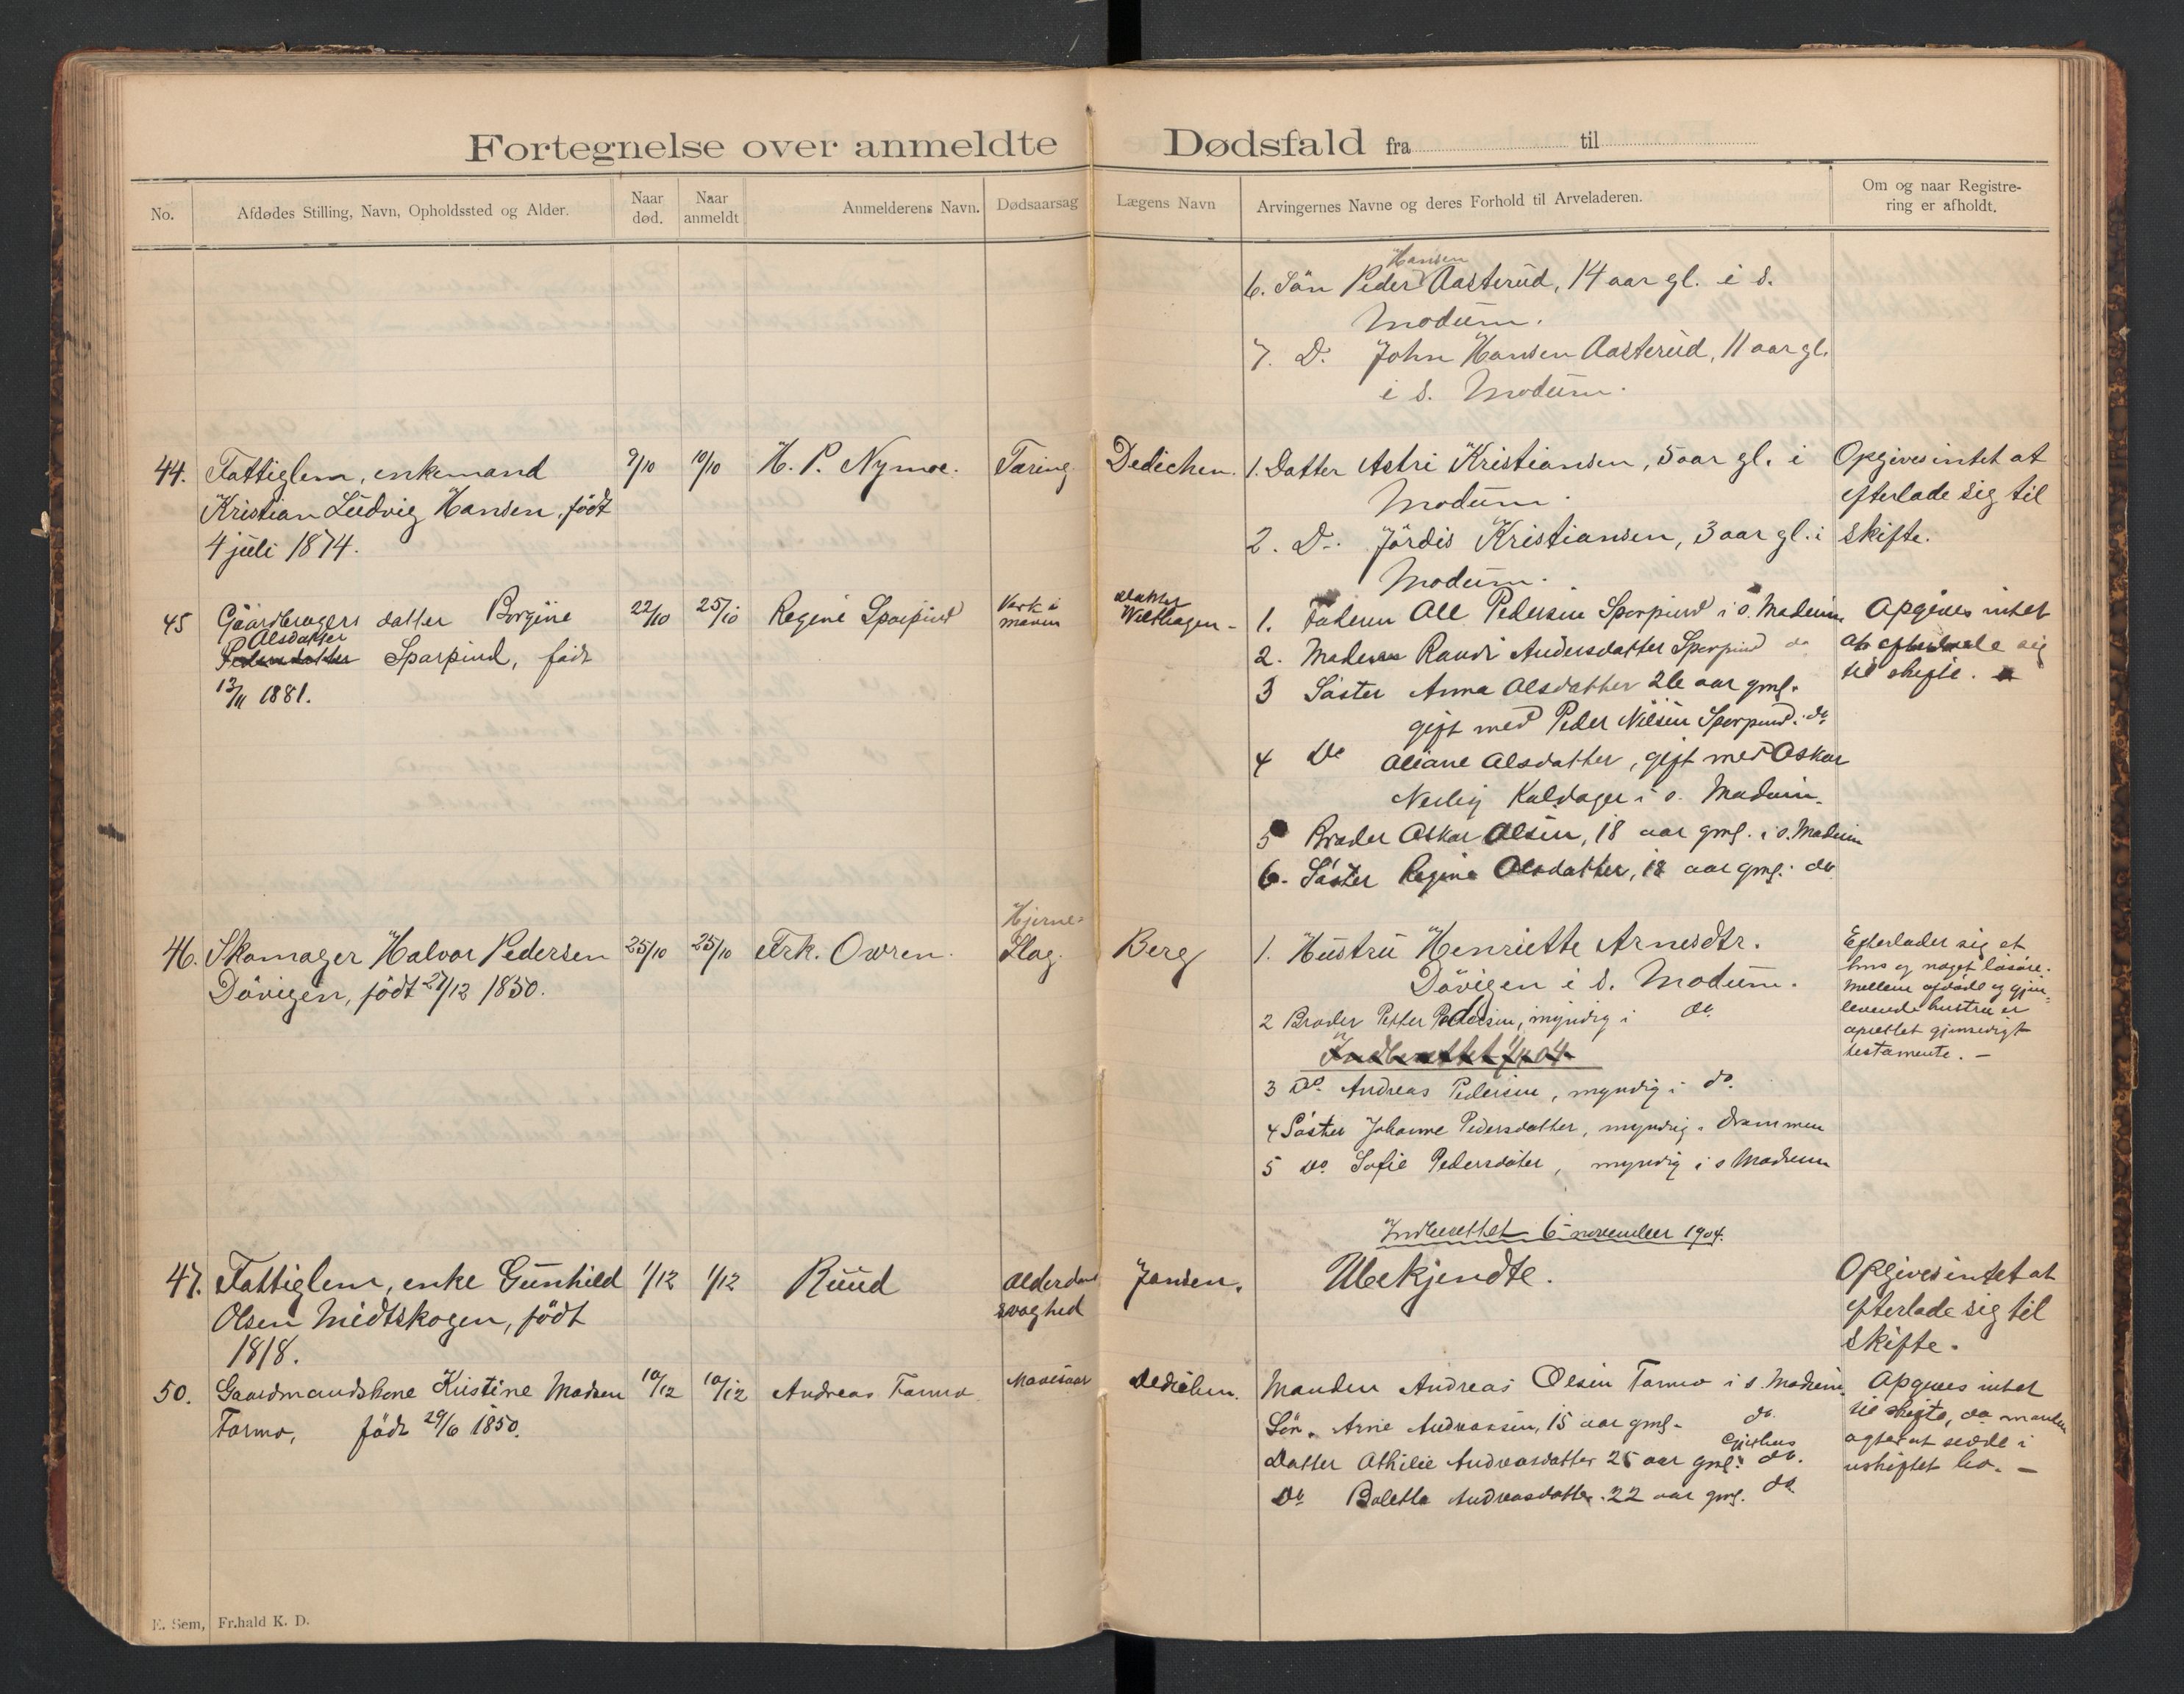 Fortegnelse over anmeldte Dødsfald fra til
No. Afdødes Stilling, Navn, Opholdssted og Alder. Naar død. Naar anmeldt Anmelderens Navn. Dødsaarsag Lægens Navn Arvingernes Navne og deres Forhold til Arveladeren. Om og naar Registrering er afholdt.
Hansen
6. Sön Peder Aasterud, 14 aar gl. i S.
Modum.
7. D. John Hansen Aasterud, 11 aar gl.
i S. Modum.
44. Fattiglem, enkemand 9/10 10/10 H. P. Nymoe. Tæring Dedichen. 1. Datter Astri Kristiansen, 5 aar gl. i Opgives intet at
Kristian Ludvig Hansen, født Modum. efterlade sig til
4 juli 1874. 2. D. Jördis Kristiansen, 3 aar gl. i skifte.
Modum.
45 Gaardbrugers datter Borgine 22/10 25/10 Regine Sparpind Verk i maven Wilthagen - 1. Faderen Ole Pedersen Sparpind i s. Modum Opgives intet
Olsdatter
Pedersdatter Sparpind, född 2. Moderen Randi Andersdatter Sparpind do at efterlade sig
13/11 1881. 3 Söster Anna Olsdatter 26 aar gml. til skifte.
gift med Peder Nilsen Sparpind. do
4 Do Oliane Olsdatter, gift med Oskar
Kaldager i s. Modum.
5 Broder Oskar Olsen, 18 aar gml. i s. Modum
6. Söster Regine Olsdatter, 18 aar gml. do
46. Skomager Halvor Pedersen 25/10 25/10 Frk. Owren. Hjerne-
Slag. Berg 1. Hustru Henriette Arnesdtr. Efterlader sig et
Dövigen, født 27/12 1850. Dövigen i S. Modum. hus og noget lösöre.
2 Broder Petter Pedersen, myndig i do Mellem afdöde og gjen-
Indberettet 1/11 04. levende hustru er
3 Do. Andreas Pedersen, myndig i do. oprettet gjensidigt
4 Söster Johanne Pedersdatter, myndig i Drammen testamente. -
5 Do. Sofie Pedersdatter, myndig i s Modum
Indberettet 6 november 1904.
47. Fattiglem, enke Gunhild 1/12 1/12 Ruud Alderdoms
svaghed Jansen. Ubekjendte. Opgives intet at
Olsen Midtskogen, født efterlade sig til
1818. skifte.
50. Gaardmandskone Kristine Madsen 10/12 10/12 Andreas Formo Mavesaar Dedichen. Manden Andreas Olsen Formo i s. Modum. Opgives intet
Formo, född 29/6 1850. Sön. Arne Andreassen, 15 aar gml. do. til skifte, da manden
Datter Othilie Andreasdatter 25 aar gml. do. agter at sidde i
Do Boletta Andreasdatter. 22 aar gml. do uskiftet bo. -
E. Sem, Fr.hald K. D.